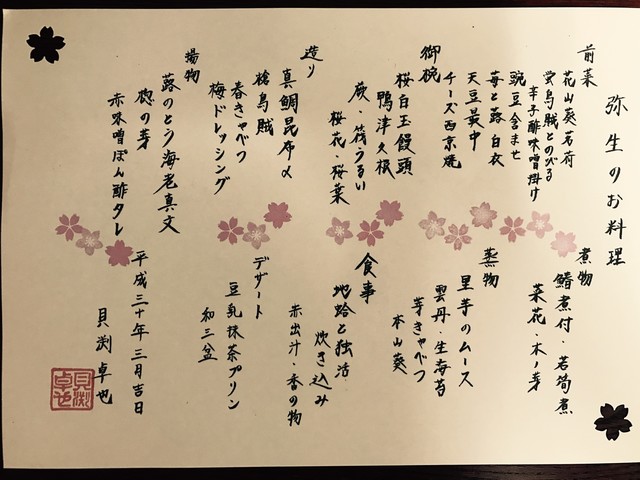 弥生のお料理
前菜
花山葵若荷
蛍烏賊とのびる
辛子酢味噌掛け
豌豆含ませ
苺と蕗白衣
天豆最中
チーズ西京焼
御椀
桜白玉饅頭
鴨津久根
蕨・筏うるい
桜花・桜葉
造り
真鯛昆布〆
槍烏賊
春きゃべつ
梅ドレッシング
揚物
蕗のとう海老真丈
楤の芽
赤味噌ぽん酢タレ
煮物
鰆煮付・若筍煮
菜花・木ノ芽
蒸物
里芋のムース
雲丹・生海苔
芽きゃべつ
本山葵
食事
地蛤と独活
炊き込み
赤出汁・香の物
デザート
豆乳抹茶プリン
和三盆
平成三十年三月吉日
貝渕卓也
貝渕
卓也